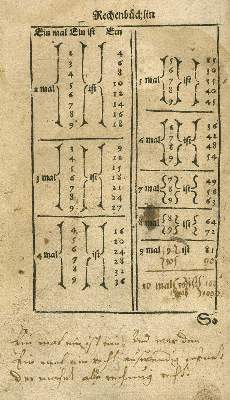 Rechenbüchlin
Ein mal Ein ist Ein
2 mal ist
2 4
3 6
4 8
5 10
6 12
7 14
8 16
9 18
3 mal ist
3 9
4 12
5 15
6 18
7 21
8 24
9 27
4 mal ist
4 16
5 20
6 24
7 28
8 32
9 36
5 mal ist
5 25
6 30
7 35
8 40
9 45
6 mal ist
6 36
7 42
8 48
9 54
7 mal ist
7 49
8 56
9 63
8 mal ist
8 64
9 72
9 mal ist
9 81
10 90
10 mal
So
Ein mal ein ist ein, Und wer den
Ein mal ein recht auswendig
Der macht alle rechnung